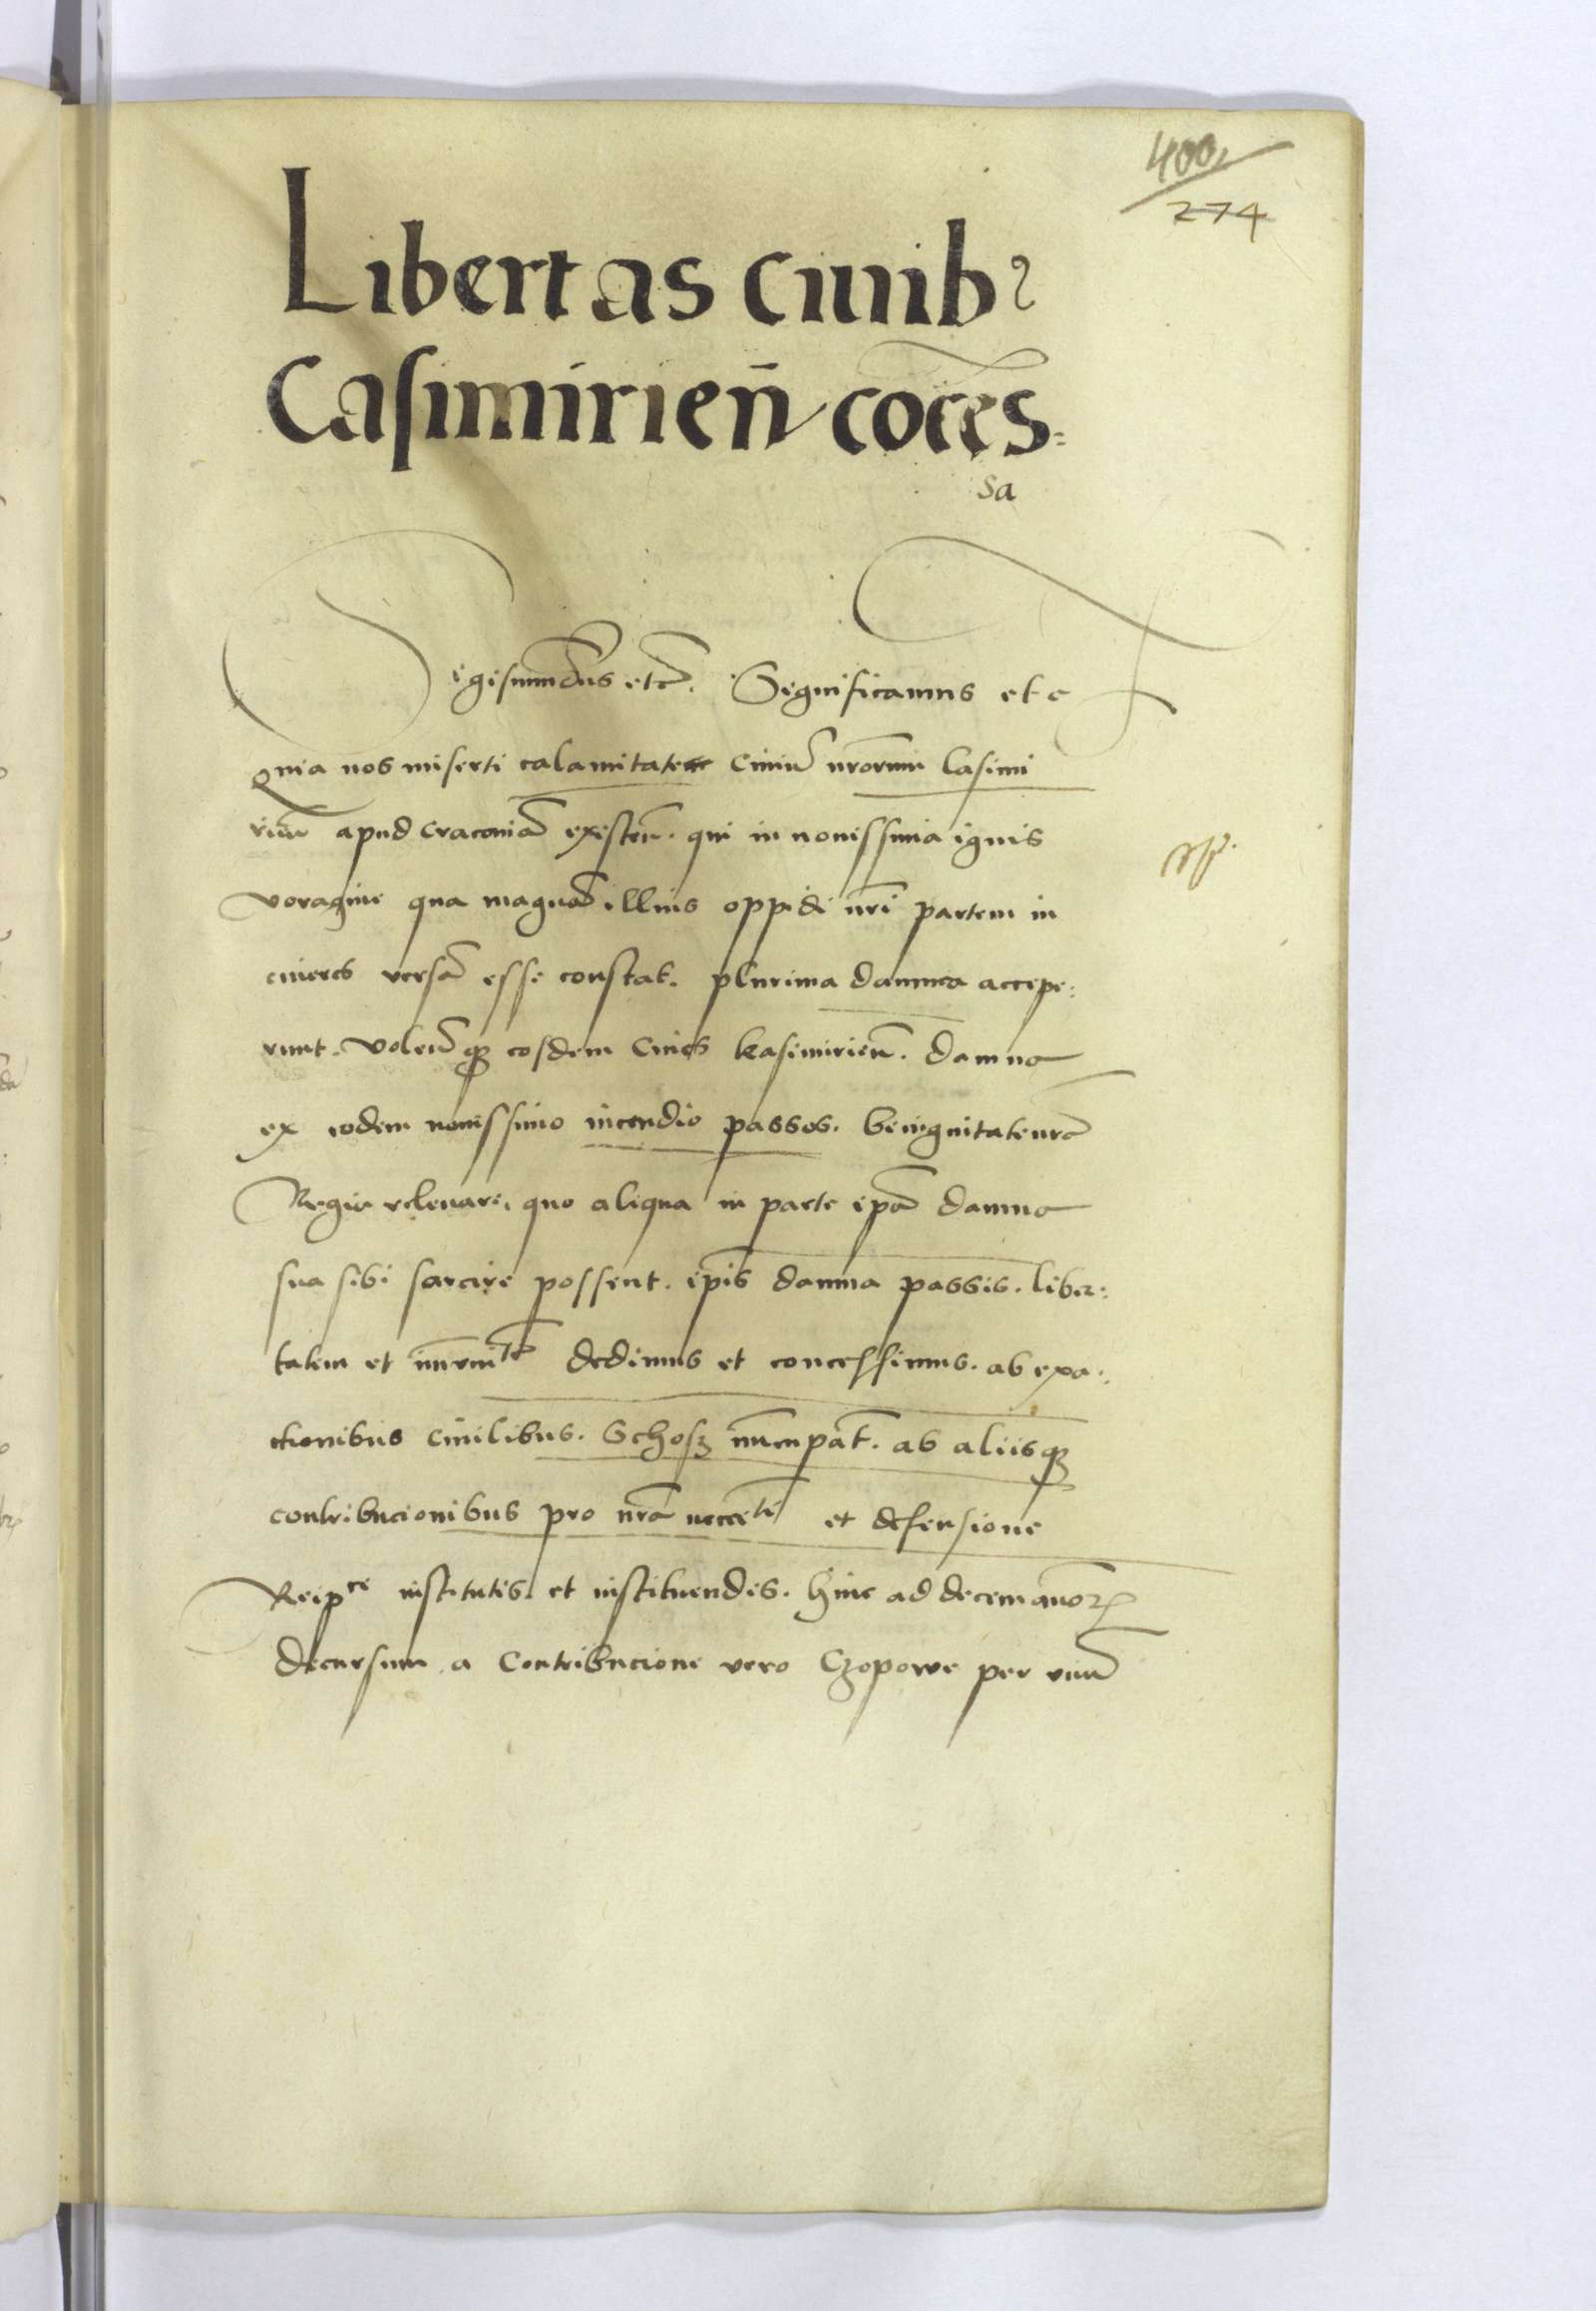 400
274
Libertas ciuib9
Casimirien̄ coc̄es=
sa
Sigismundus etc̄. Significamus etc
Quia nos miserti calamitatem ciuiū nr̄orum Casimi
rien̄ apud Cracouiā existen̄. qui in nouissima ignis
voragine qua magnā illius oppidi nr̄i partem in
cineres versā esse constat. plurima damna accepe:
runt. volen̄ꝗ eosdem Ciues kasimirien̄. damna
ex eodem nouissimo incendio passos. benignitate nr̄a
Regia releuare. quo aliqua in parte ip̄a damna
sua sibi sarcire possent. ip̄is damna passis. liber:
tatem et im̄unitē dedimus et concessimus. ab exa:
ctionibus Ciuilibus. Schosz nuncupat̄. ab aliisꝗ
contribucionibus pro nr̄a neccēti et defensione
Reipce institutis. et instituendis. hinc ad decem annoꝝ
decursum a Contribucione vero Czopowe per vnū